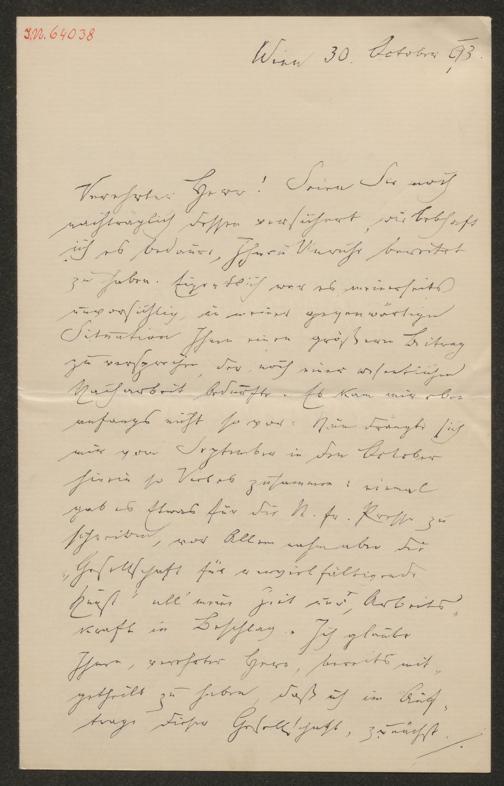 I.N. 64038
Wien 30. October 93.
Verehrter Herr! Seien Sie noch
nachträglich dessen versichert, wie lebhaft
ich es bedaure, Ihnen Unruhe bereitet
zu haben. Eigentlich war es meinerseits
unvorsichtig, in meiner gegenwärtigen
Situation Ihnen einen größeren Beitrag
zu versprechen, der noch einer wesentlichen
Nacharbeit bedurfte. Es kam mir aber
anfangs nicht so vor. Nun drängte sich
mir vom September in den October
hinein so Vieles zusammen: einmal
gab es Etwas für die N. fr. Presse zu
schreiben, vor Allem nahm aber die
„Gesellschaft für vervielfältigende
Kunst" all' meine Zeit und Arbeits-
kraft in Beschlag. Ich glaube
Ihnen, verehrter Herr, bereits mit-
getheilt zu haben, daß ich im Auf-
trage dieser Gesellschaft, zunächst